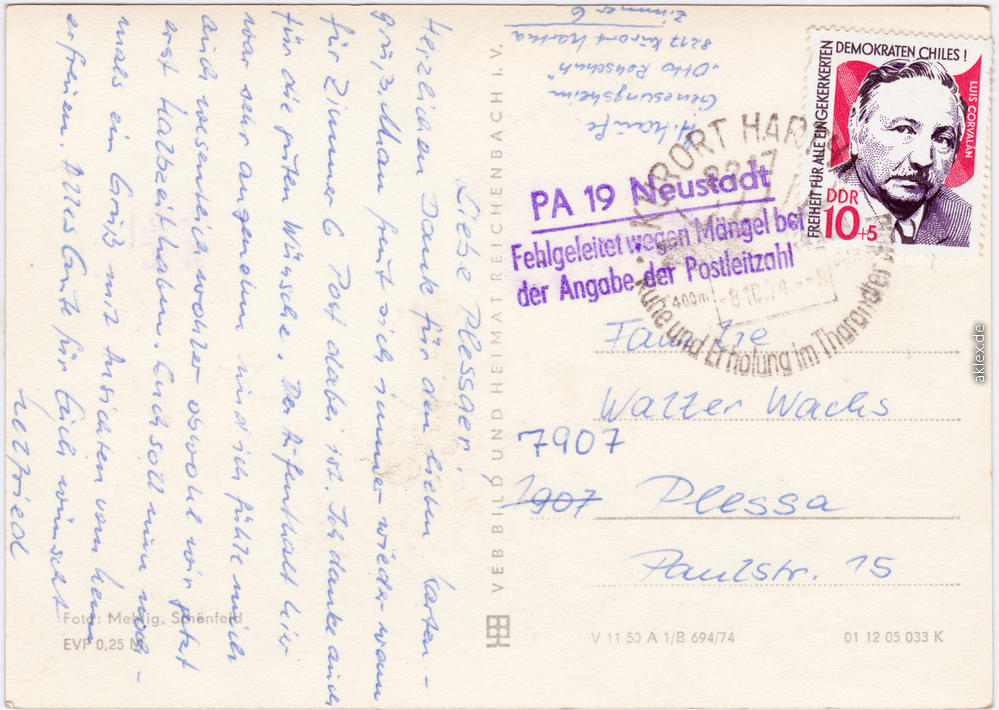 Liebe Plessaer!
Herzlichen Dank für den lieben Karten-
gruß. Man freut sich immer wieder wenn
für Zimmer 6 Post dabei ist. Ich danke auch
für die guten Wünsche. Der Aufenthalt hier
war sehr angenehm und ich fühle mich
auch wesentlich wohler obwohl wir jetzt
erst Halbzeit haben. Euch soll nun noch-
mals ein Gruß mit Ansichten von hier
erfreuen. Alles Gute für Euch wünscht
Foto: Mehlig, Schönfeld
EVP 0,25 M
VEB BILD UND HEIMAT REICHENBACH I. V.
Genesungsheim
8217 Kurort Hartha
Zimmer 6
PA 19 Neustadt
Fehlgeleitet wegen Mängel bei
der Angabe der Postleitzahl
KURORT HARTHA
8217
400m
-8.10.74.--9
Ruhe und Erholung im Tharandter
FREIHEIT FÜR ALLE EINGEKERKERTEN
DEMOKRATEN CHILES!
LUIS CORVALÁN
DDR
10+5
Familie
Walter Wachs
7907
1907 Plessa
Paulstr. 15
V 11 50 A 1/B 694/74
01 12 05 033 K
aklex.de